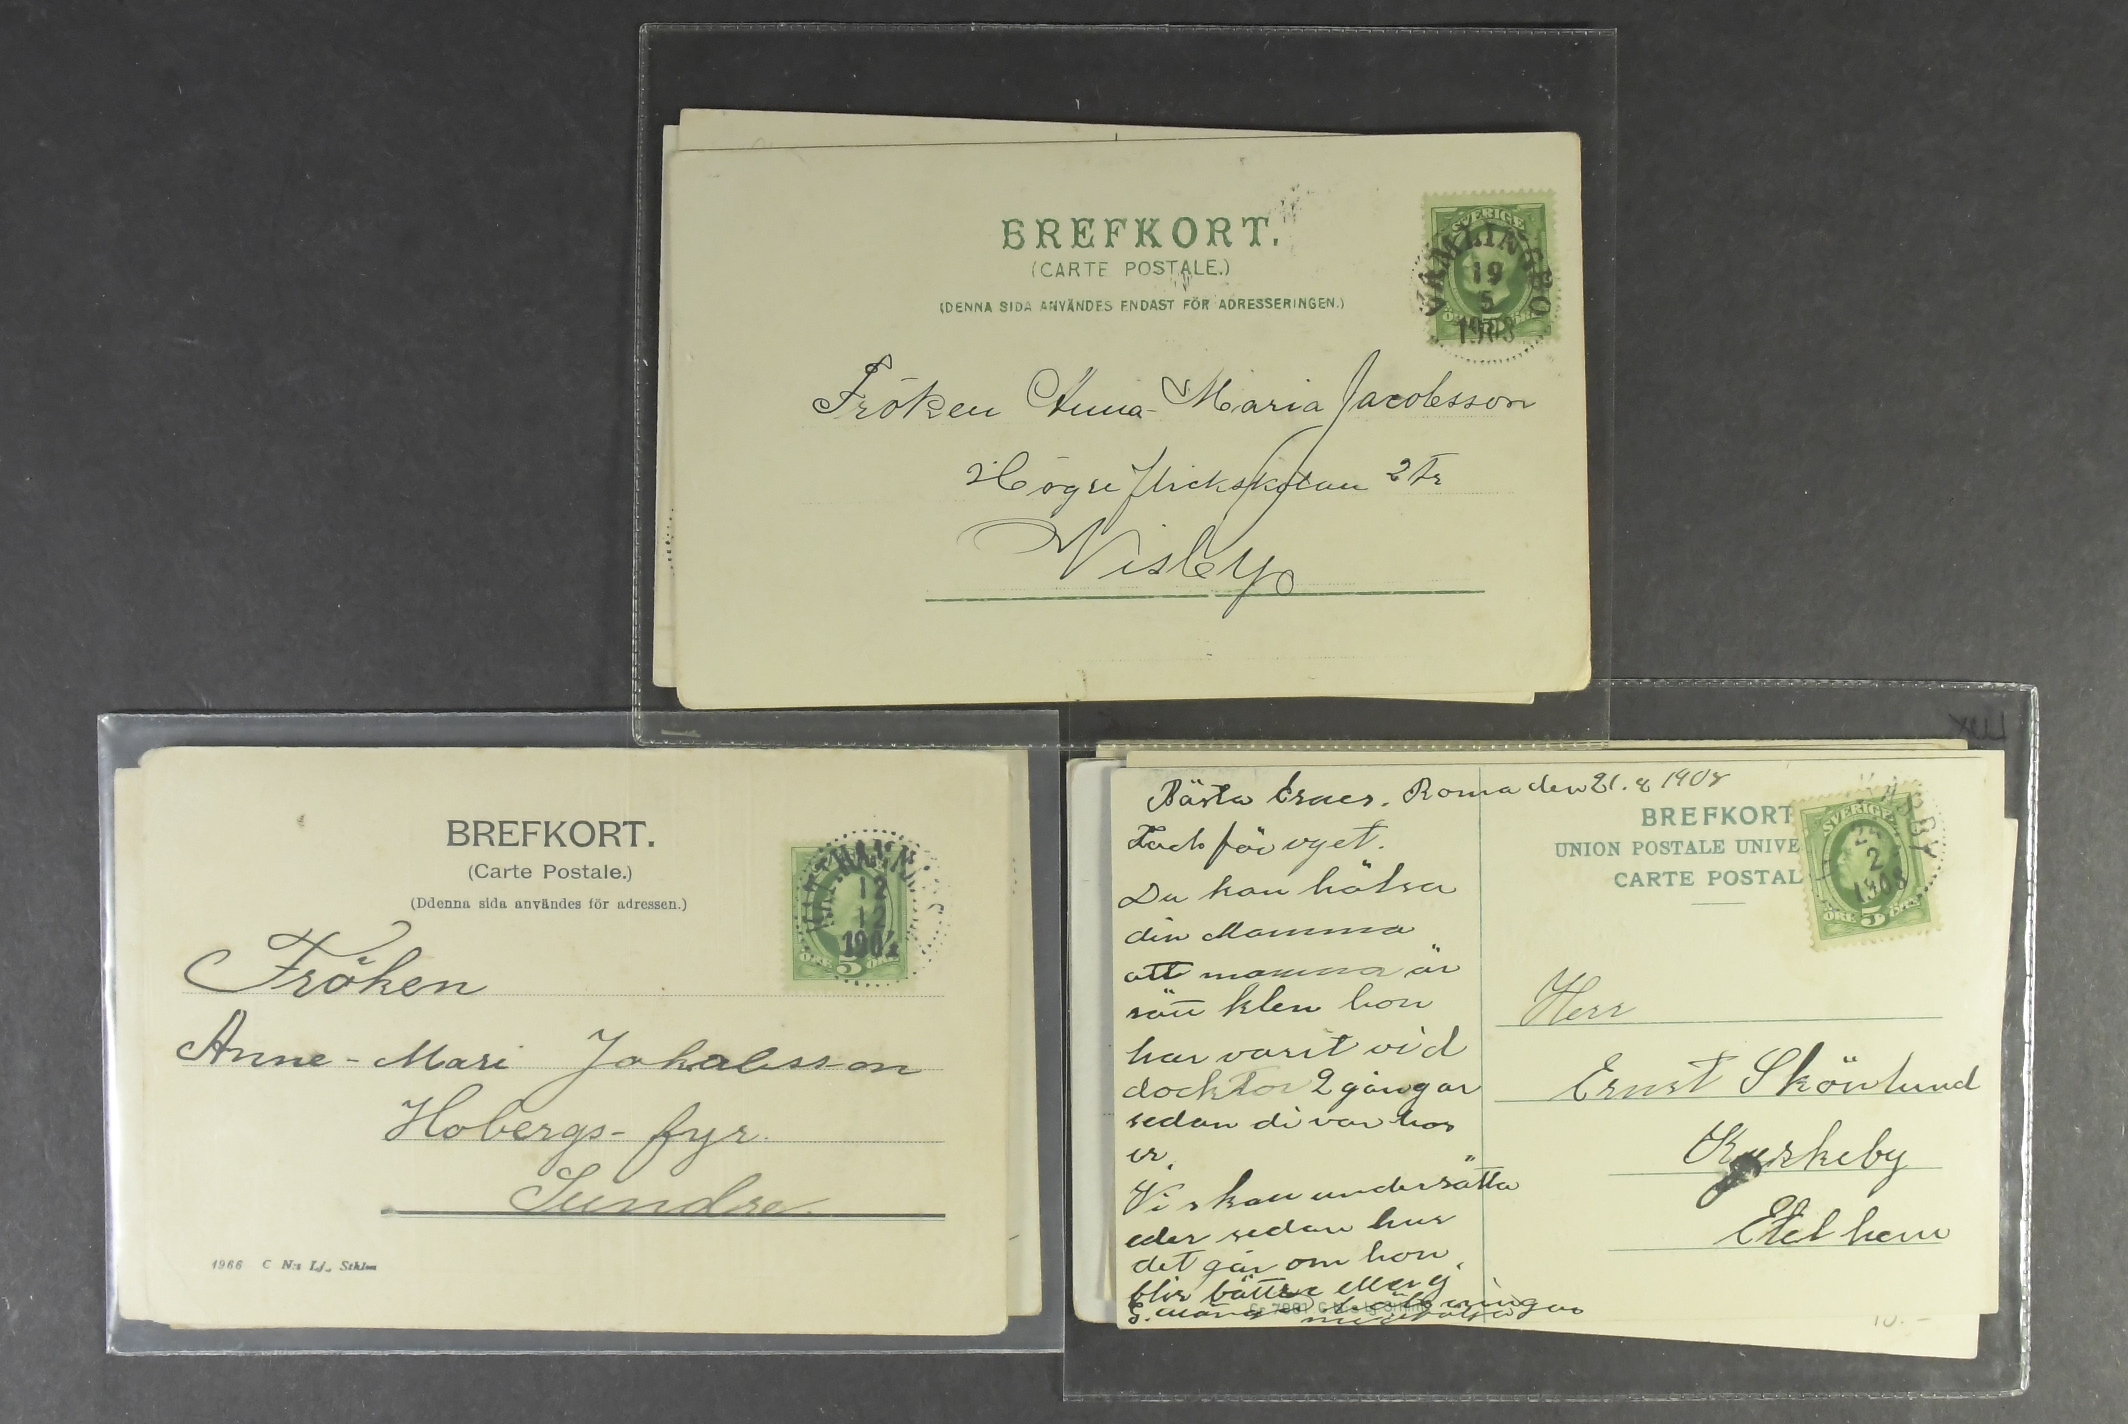 BREFKORT.
(CARTE POSTALE.)
(DENNA SIDA ANVÄNDES ENDAST FÖR ADRESSERINGEN.)
SVERIGE
VAMLINGBO
19
5
1908
Fröken Anna-Maria Jacobsson
Högre flickskolan 2 tr
Visby
BREFKORT.
(Carte Postale.)
(Ddenna sida användes för adressen.)
12
12
1904
ÖRE 5 ÖRE
Fröken
Anne-Mari Jakobsson
Hobergs-fyr.
Sundre.
1966 C N:s Lj., Sthlm
Bästa Ernes. Roma den 21. 2 1908
Tack för vyet.
Du kan hälsa
din Mamma
att mamma är
sån klen hon
har varit vid
docktor 2 gångar
sedan di var hos
er.
Vi skan undersätta
eder sedan hur
det går om hon
blir bättre eller ej
BREFKORT
UNION POSTALE UNIVE
CARTE POSTAL
SVERIGE
2
1908
ÖRE 5 ÖRE
Herr
Ernst Skönlund
Kyrkeby
Etelhem
10.-